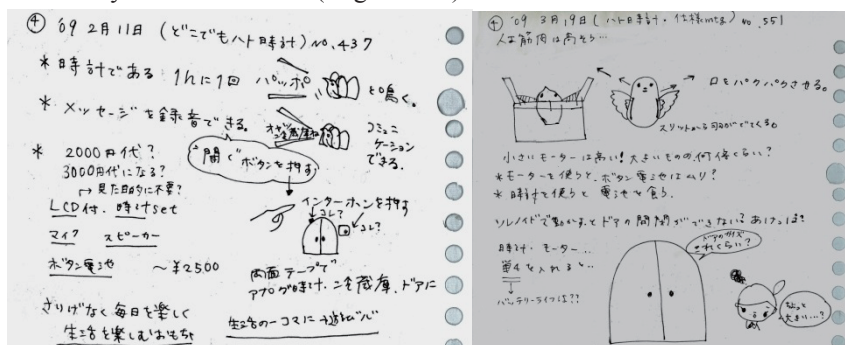 ④ '09 2月11日 (どこでもハト時計) No.437
* 時計である 1hに1回 パッポ と鳴く。
* メッセージを録音できる。
コミュニケーションできる。
「開く」ボタンを押す
* 2000円代？
3000円代になる？
→見た目的に不要？
LCD付. 時計set
マイク スピーカー
ボタン電池 〜¥2500
インターホンを押す
コレ？
コレ？
両面テープで
アナログ時計、冷蔵庫、ドアに
さりげなく毎日を楽しく
生活を楽しむおもちゃ
生活の一コマに
④ '09 3月19日 (ハト時計・仕様mtg) No.551
人工筋肉は高そう…
→ 口をパクパクさせる。
スリットから羽がでてくる。
小さいモーターは高い！大きいものの何倍くらい？
*モーターを使うと、ボタン電池はムリ？
* 時計を使うと 電池を食う。
ソレノイドで動かすとドアの開閉ができない？あけっぱ？
時計・モーター…
単4を入れると…
バッテリーライフは??
ドアのサイズ
これくらい？
ちょっと
大きい…？